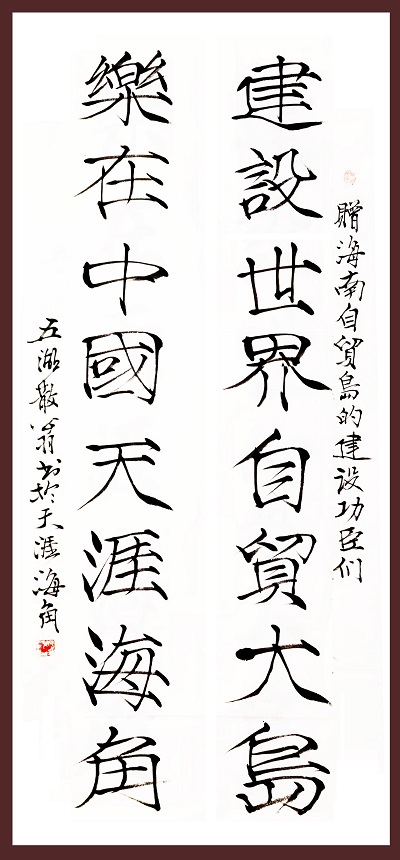 贈海南自貿島的建设功臣们
建設世界自貿大島
樂在中國天涯海角
五湖散翁书於天涯海角